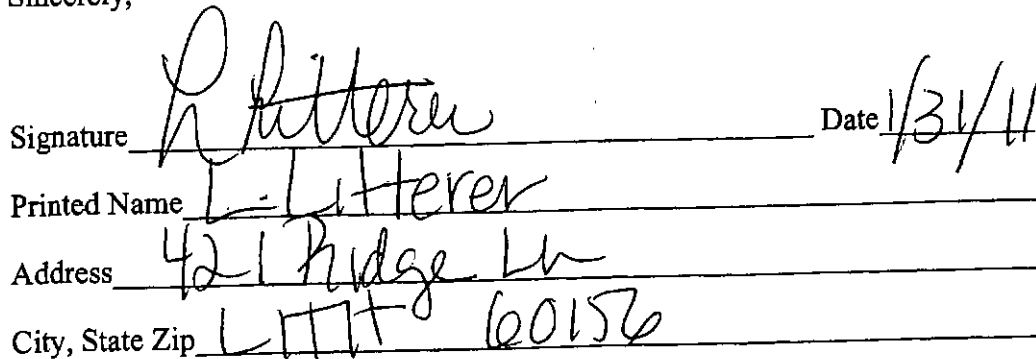 Sincerely,
Signature L Litterer Date 1/31/11
Printed Name L. Litterer
Address 421 Ridge Ln
City, State Zip 60156